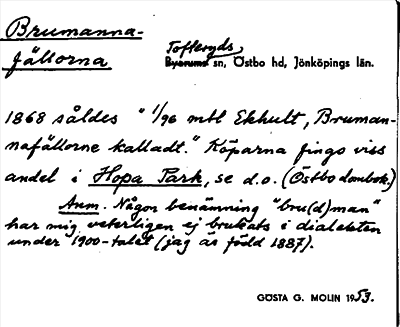 Brumanna-
fällorna
Tofteryds,
Byarums sn, Östbo hd, Jönköpings län.
1868 såldes "1/96 mtl Ekhult, Bruman-
nafällorne kalladt." Köparna fingo viss
andel i Hopa Park, se d.o. (Östbo dombok.)
Anm. Någon benämning "bru(d)man"
har mig veterligen ej brukats i dialekten
under 1900-talet (jag är född 1887).
GÖSTA G. MOLIN 1953.